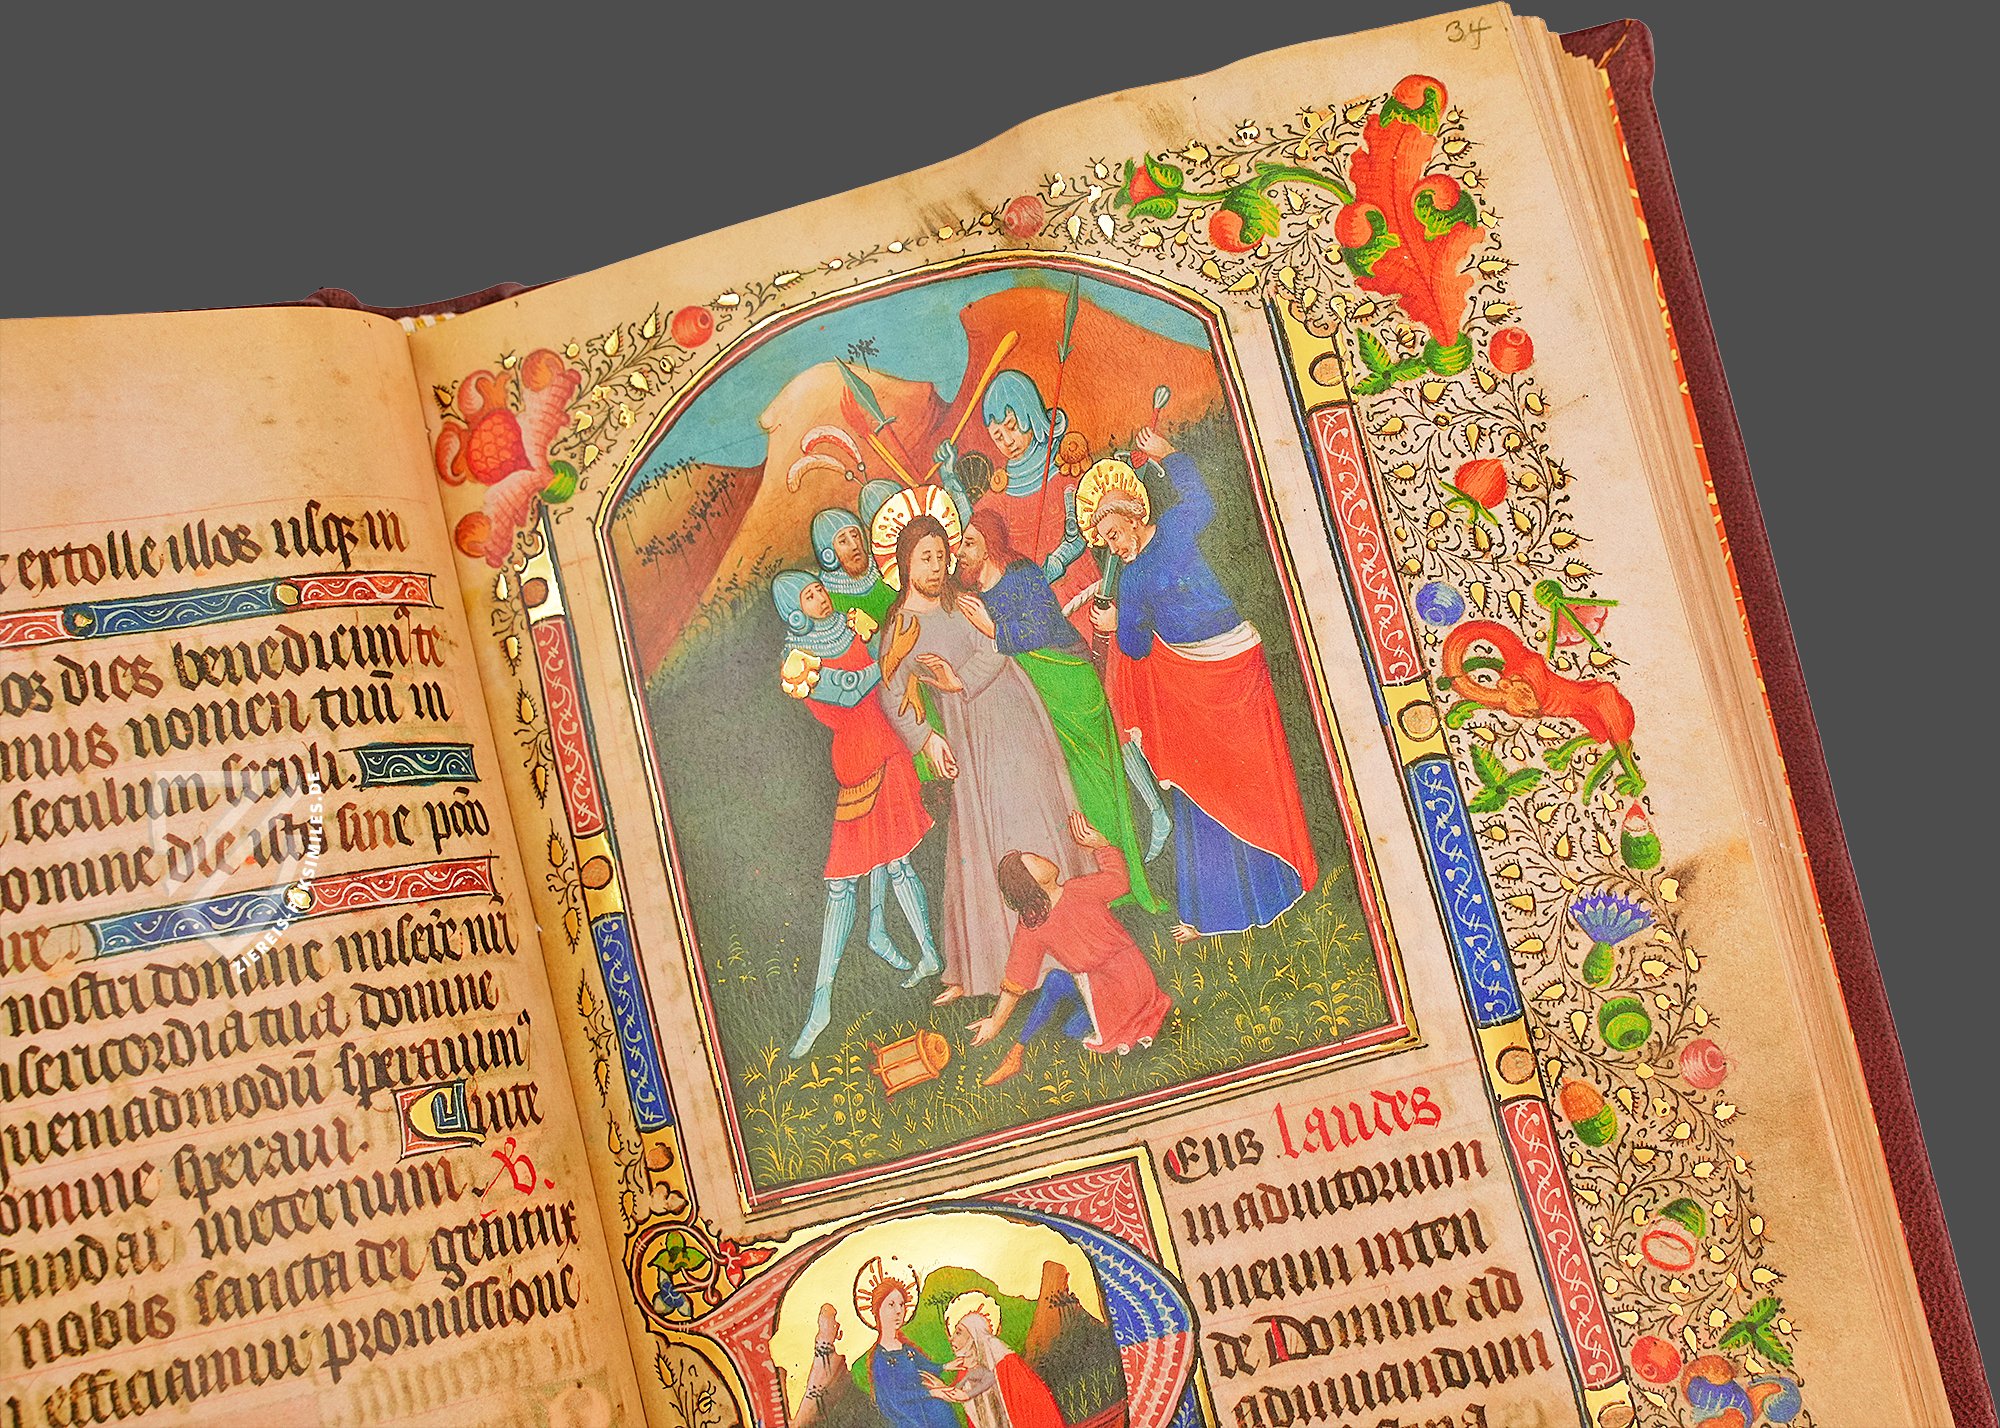 extolle illos usq; in
os dies benedicim9 te
mus nomen tuū in
seculum seculi.
omine die isto sine pcō
nostri domine misere nri
isericordia tua domine
quemadmodū speravim9
omine speravi. In te
fundar in eternum. V.
nobis sancta dei genitrix
efficiamur promissione
34
Eus laudes
in adiutorium
meum inten
de Domine ad
adiuuandum
ZIEREIS-FAKSIMILES.DE